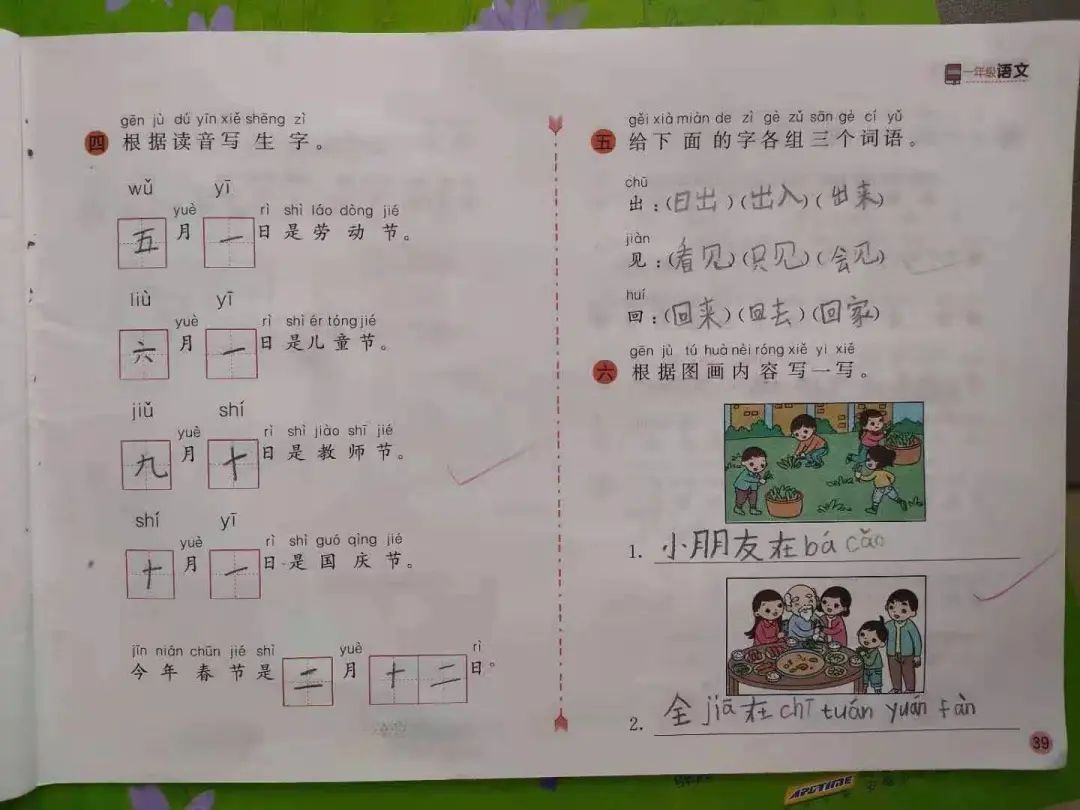 一年级语文
gēn jù dú yīn xiě shēng zì
四 根据读音写生字。
wǔ yī
yuè rì shì láo dòng jié
五月一日是劳动节。
liù yī
yuè rì shì ér tóng jié
六月一日是儿童节。
jiǔ shí
yuè rì shì jiào shī jié
九月十日是教师节。
shí yī
yuè rì shì guó qìng jié
十月一日是国庆节。
jīn nián chūn jié shì yuè rì
今年春节是二月十二日。
gěi xià miàn de zì gè zǔ sān gè cí yǔ
五 给下面的字各组三个词语。
chū
出:(日出)(出入)(出来)
jiàn
见:(看见)(只见)(会见)
huí
回:(回来)(回去)(回家)
gēn jù tú huà nèi róng xiě yi xiě
六 根据图画内容写一写。
1. 小朋友在bá cǎo
2. 全jiā在chī tuán yuán fàn
39